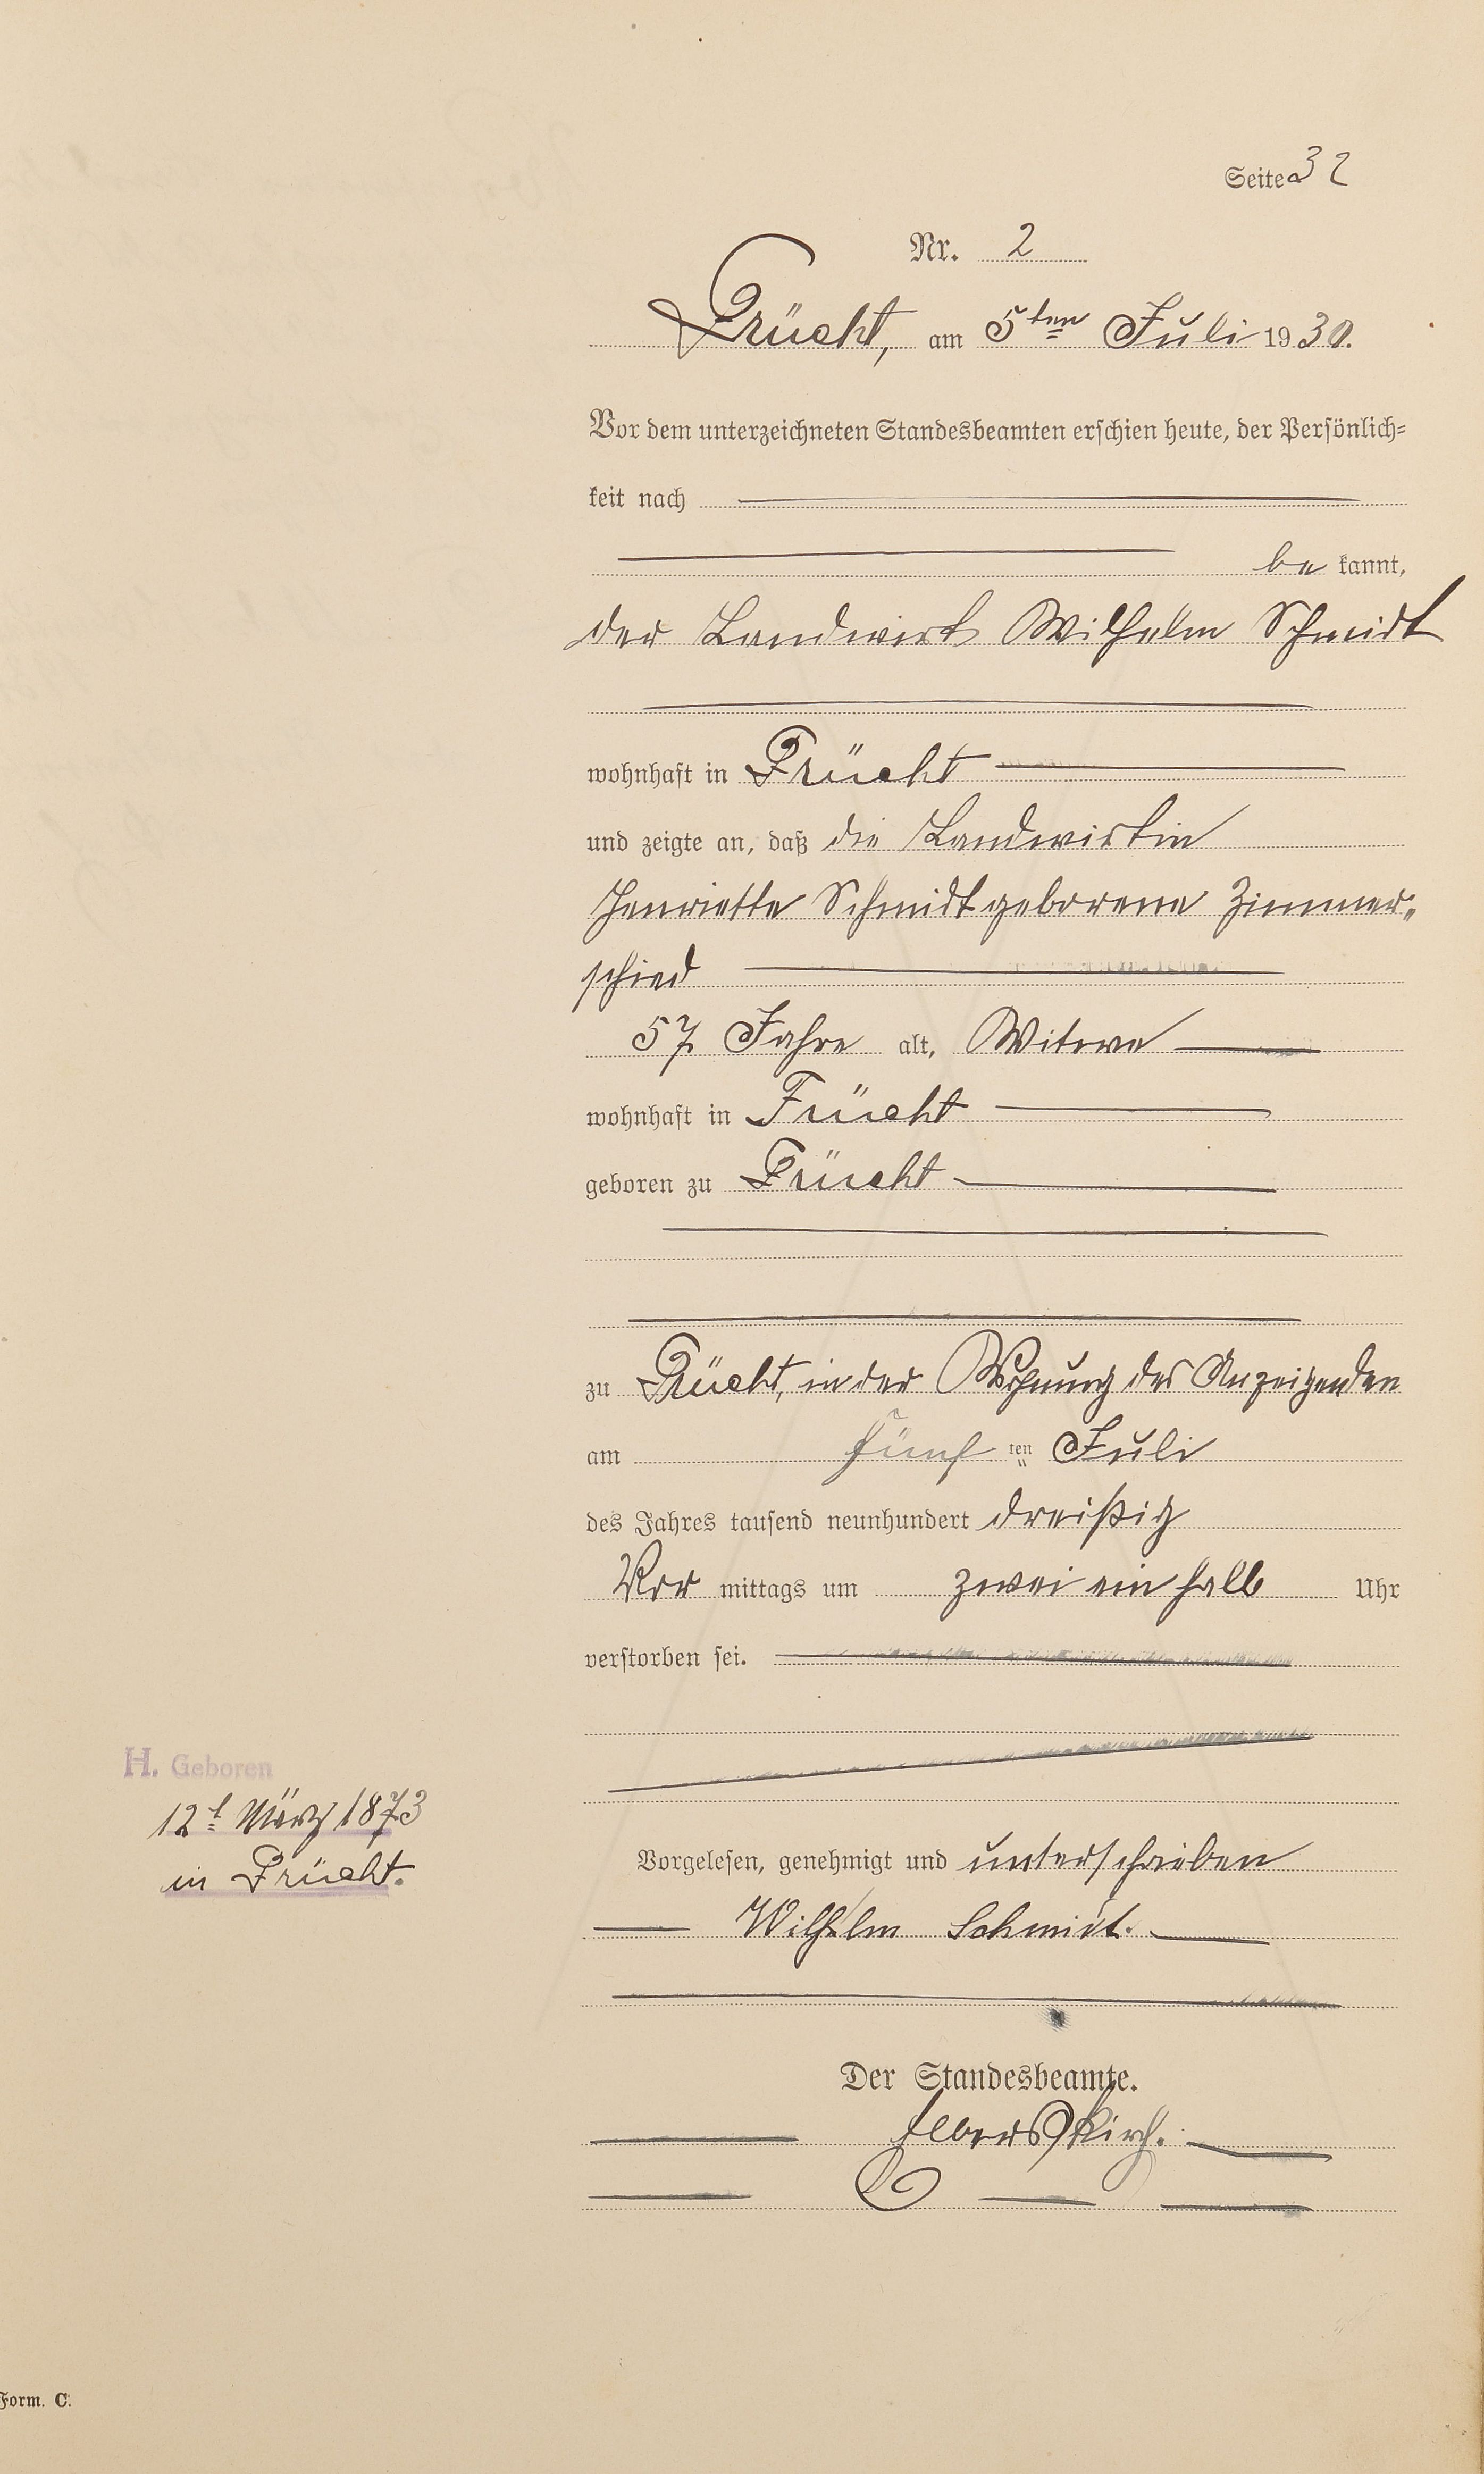 Seite 32
Nr. 2
Frücht, am 5ten Juli 1930.
Vor dem unterzeichneten Standesbeamten erschien heute, der Persönlich=
keit nach
be kannt,
der Landwirt Wilhelm Schmidt
wohnhaft in Frücht
und zeigte an, daß die Landwirtin
Henriette Schmidt geborene Zimmer„
schied
57 Jahre alt, Witwe
wohnhaft in Frücht
geboren zu Frücht
zu Frücht, in der Wohnung des Anzeigenden
am fünf ten Juli
des Jahres tausend neunhundert dreißig
Vor mittags um zwei ein halb Uhr
verstorben sei.
H. Geboren
12t März 1873
in Frücht.
Vorgelesen, genehmigt und unterschrieben
Wilhelm Schmidt.
Der Standesbeamte.
Elberskirch.
Form. C.